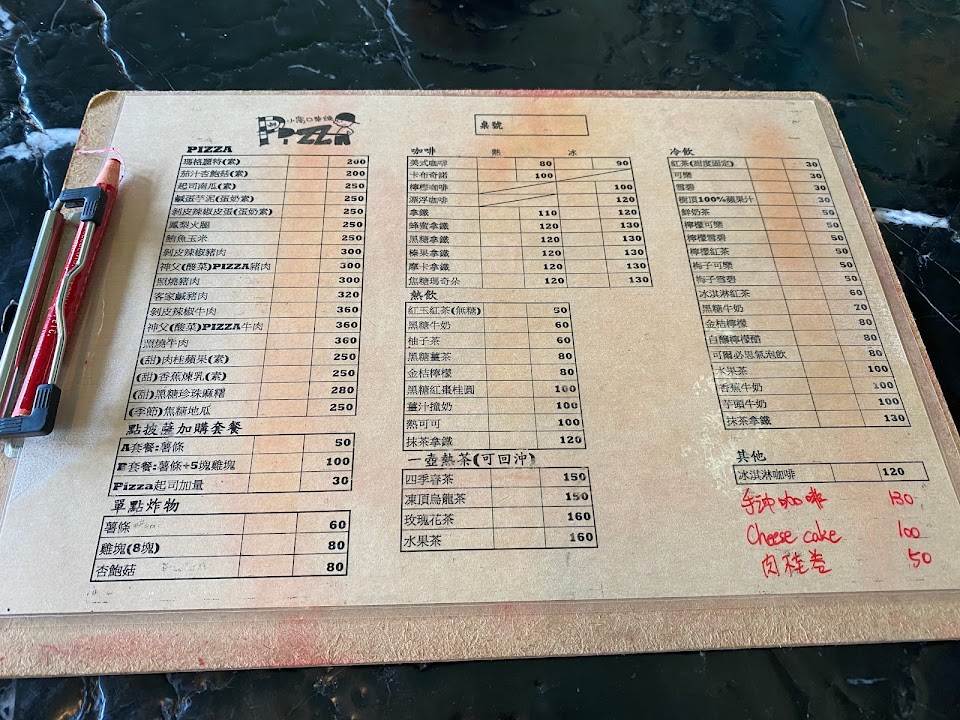 小窩口華德
PIZZA
桌號
PIZZA
瑪格麗特(素) 200
茄汁杏鮑菇(素) 250
起司南瓜(素) 250
鹹蛋芋泥(蛋奶素) 250
剝皮辣椒皮蛋(蛋奶素) 250
鳳梨火腿 250
鮪魚玉米 250
剝皮辣椒豬肉 300
神父(酸菜)PIZZA豬肉 300
照燒豬肉 300
客家鹹豬肉 320
剝皮辣椒牛肉 360
神父(酸菜)PIZZA牛肉 360
照燒牛肉 360
(甜)肉桂蘋果(素) 250
(甜)香蕉煉乳(素) 250
(甜)黑糖珍珠麻糬 280
(季節)焦糖地瓜 250
點披薩加購套餐
A套餐:薯條 50
B套餐:薯條+5塊雞塊 100
Pizza起司加量 30
單點炸物
薯條 60
雞塊(8塊) 80
杏鮑菇 80
咖啡 熱 冰
美式咖啡 80 90
卡布奇諾 100
檸檬咖啡 100
漂浮咖啡 120
拿鐵 110 120
蜂蜜拿鐵 120 130
黑糖拿鐵 120 130
榛果拿鐵 120 130
摩卡拿鐵 120 130
焦糖瑪奇朵 120 130
熱飲
紅玉紅茶(無糖) 50
黑糖牛奶 60
柚子茶 60
黑糖薑茶 80
金桔檸檬 80
黑糖紅棗桂圓 100
薑汁撞奶 100
熱可可 100
抹茶拿鐵 120
一壺熱茶(可回沖)
四季春茶 150
凍頂烏龍茶 150
玫瑰花茶 160
水果茶 160
冷飲
紅茶(甜度固定) 30
可樂 30
雪碧 30
樹頂100%蘋果汁 30
鮮奶茶 50
檸檬可樂 50
檸檬雪碧 50
檸檬紅茶 50
梅子可樂 50
梅子雪碧 50
冰淇淋紅茶 60
黑糖牛奶 70
金桔檸檬 80
自釀檸檬醋 80
可爾必思氣泡飲 80
水果茶 100
香蕉牛奶 100
芋頭牛奶 100
抹茶拿鐵 130
其他
冰淇淋咖啡 120
手沖咖啡 130
Cheese cake 100
肉桂卷 50